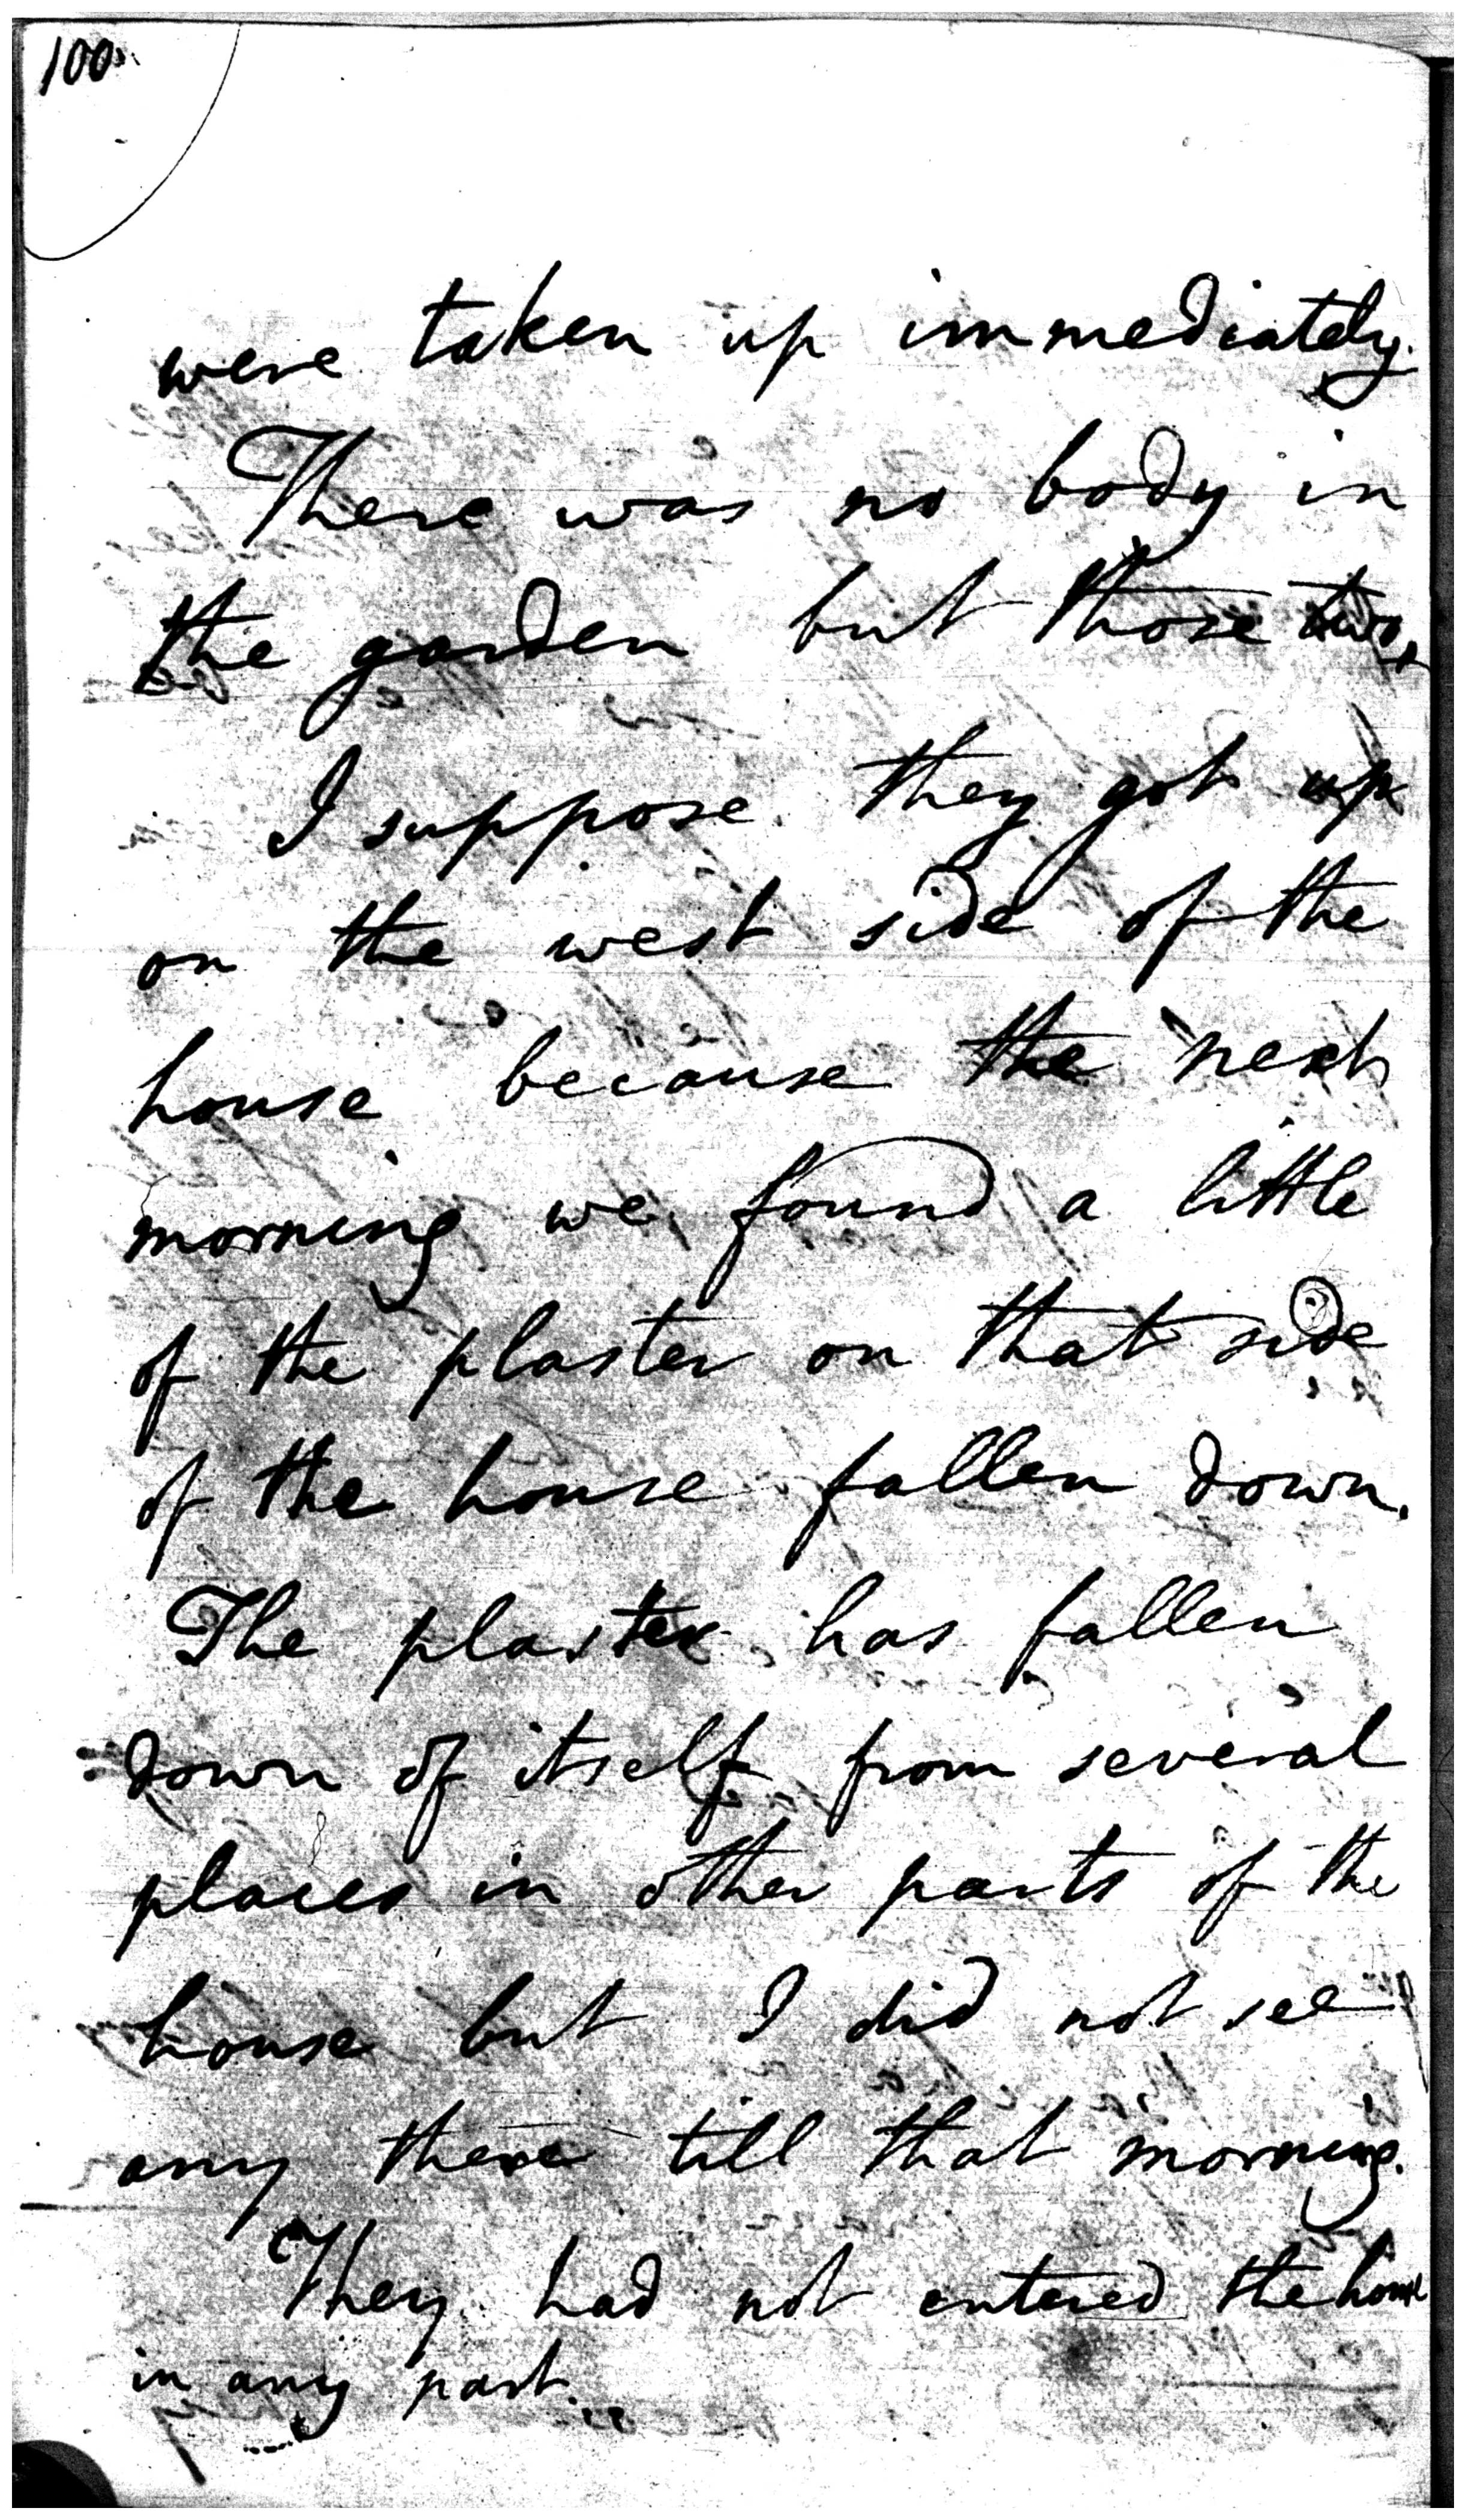 100
were taken up immediately.
There was no body in
the garden but those two,
I suppose they got up
on the west side of the
house because the next
morning we found a little
of the plaster on that side
of the house fallen down.
The plaster has fallen
down of itself from several
places in other parts of the
house but I did not see
any there till that morning.
They had not entered the house
in any part.